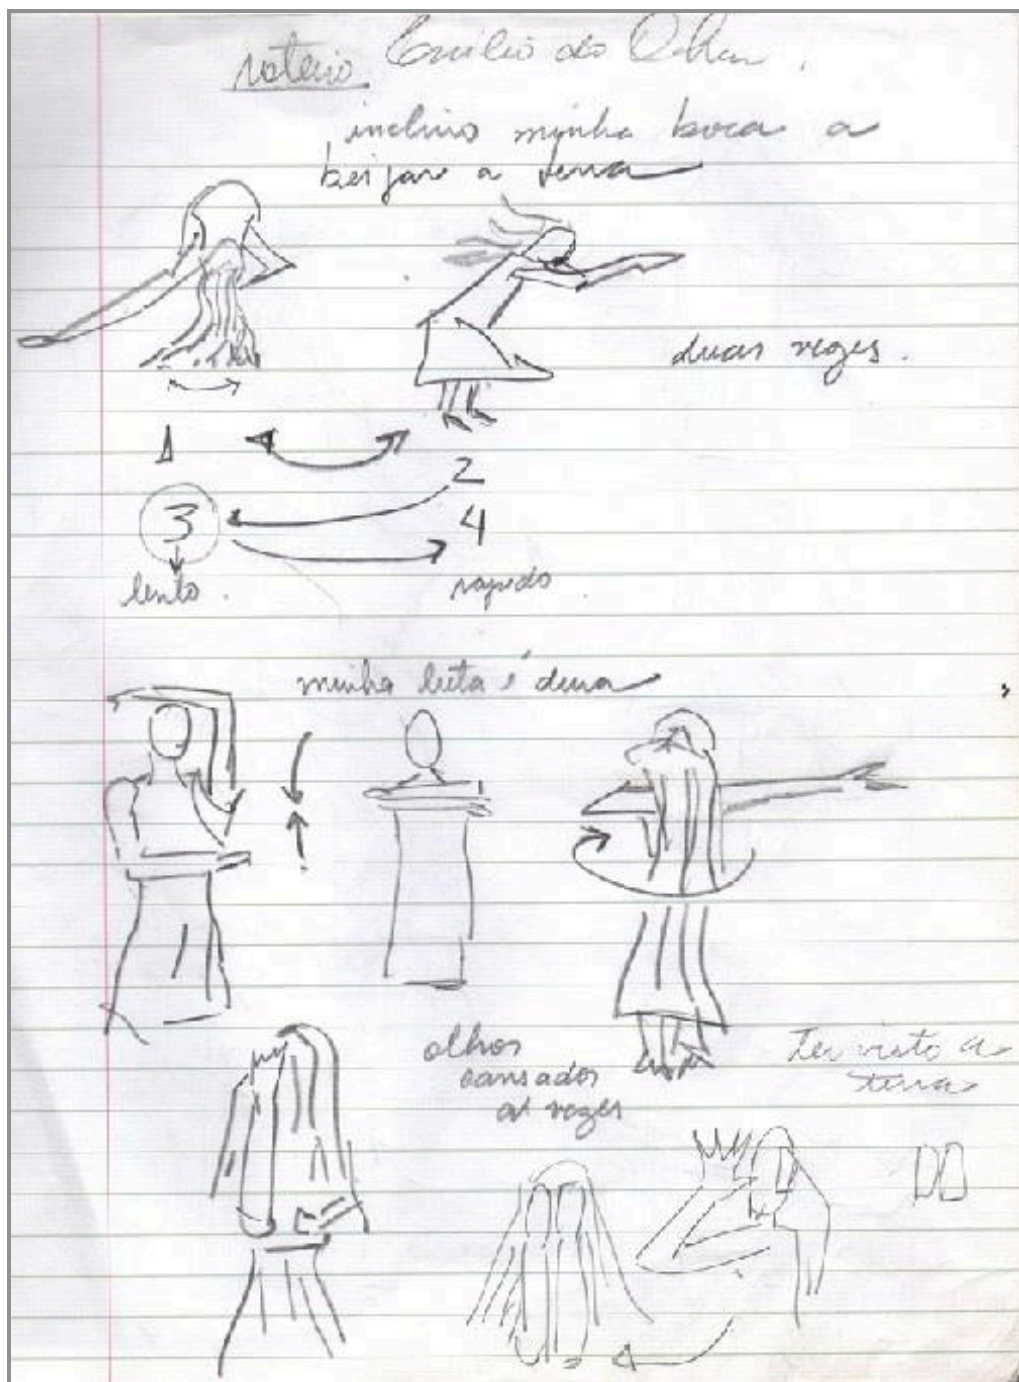 roteiro
inclino minha boca a
beijar a terra
duas vezes.
1
2
3
4
lento.
rapido.
minha luta é dura
olhos
cansados
as vezes
ter visto a
terra